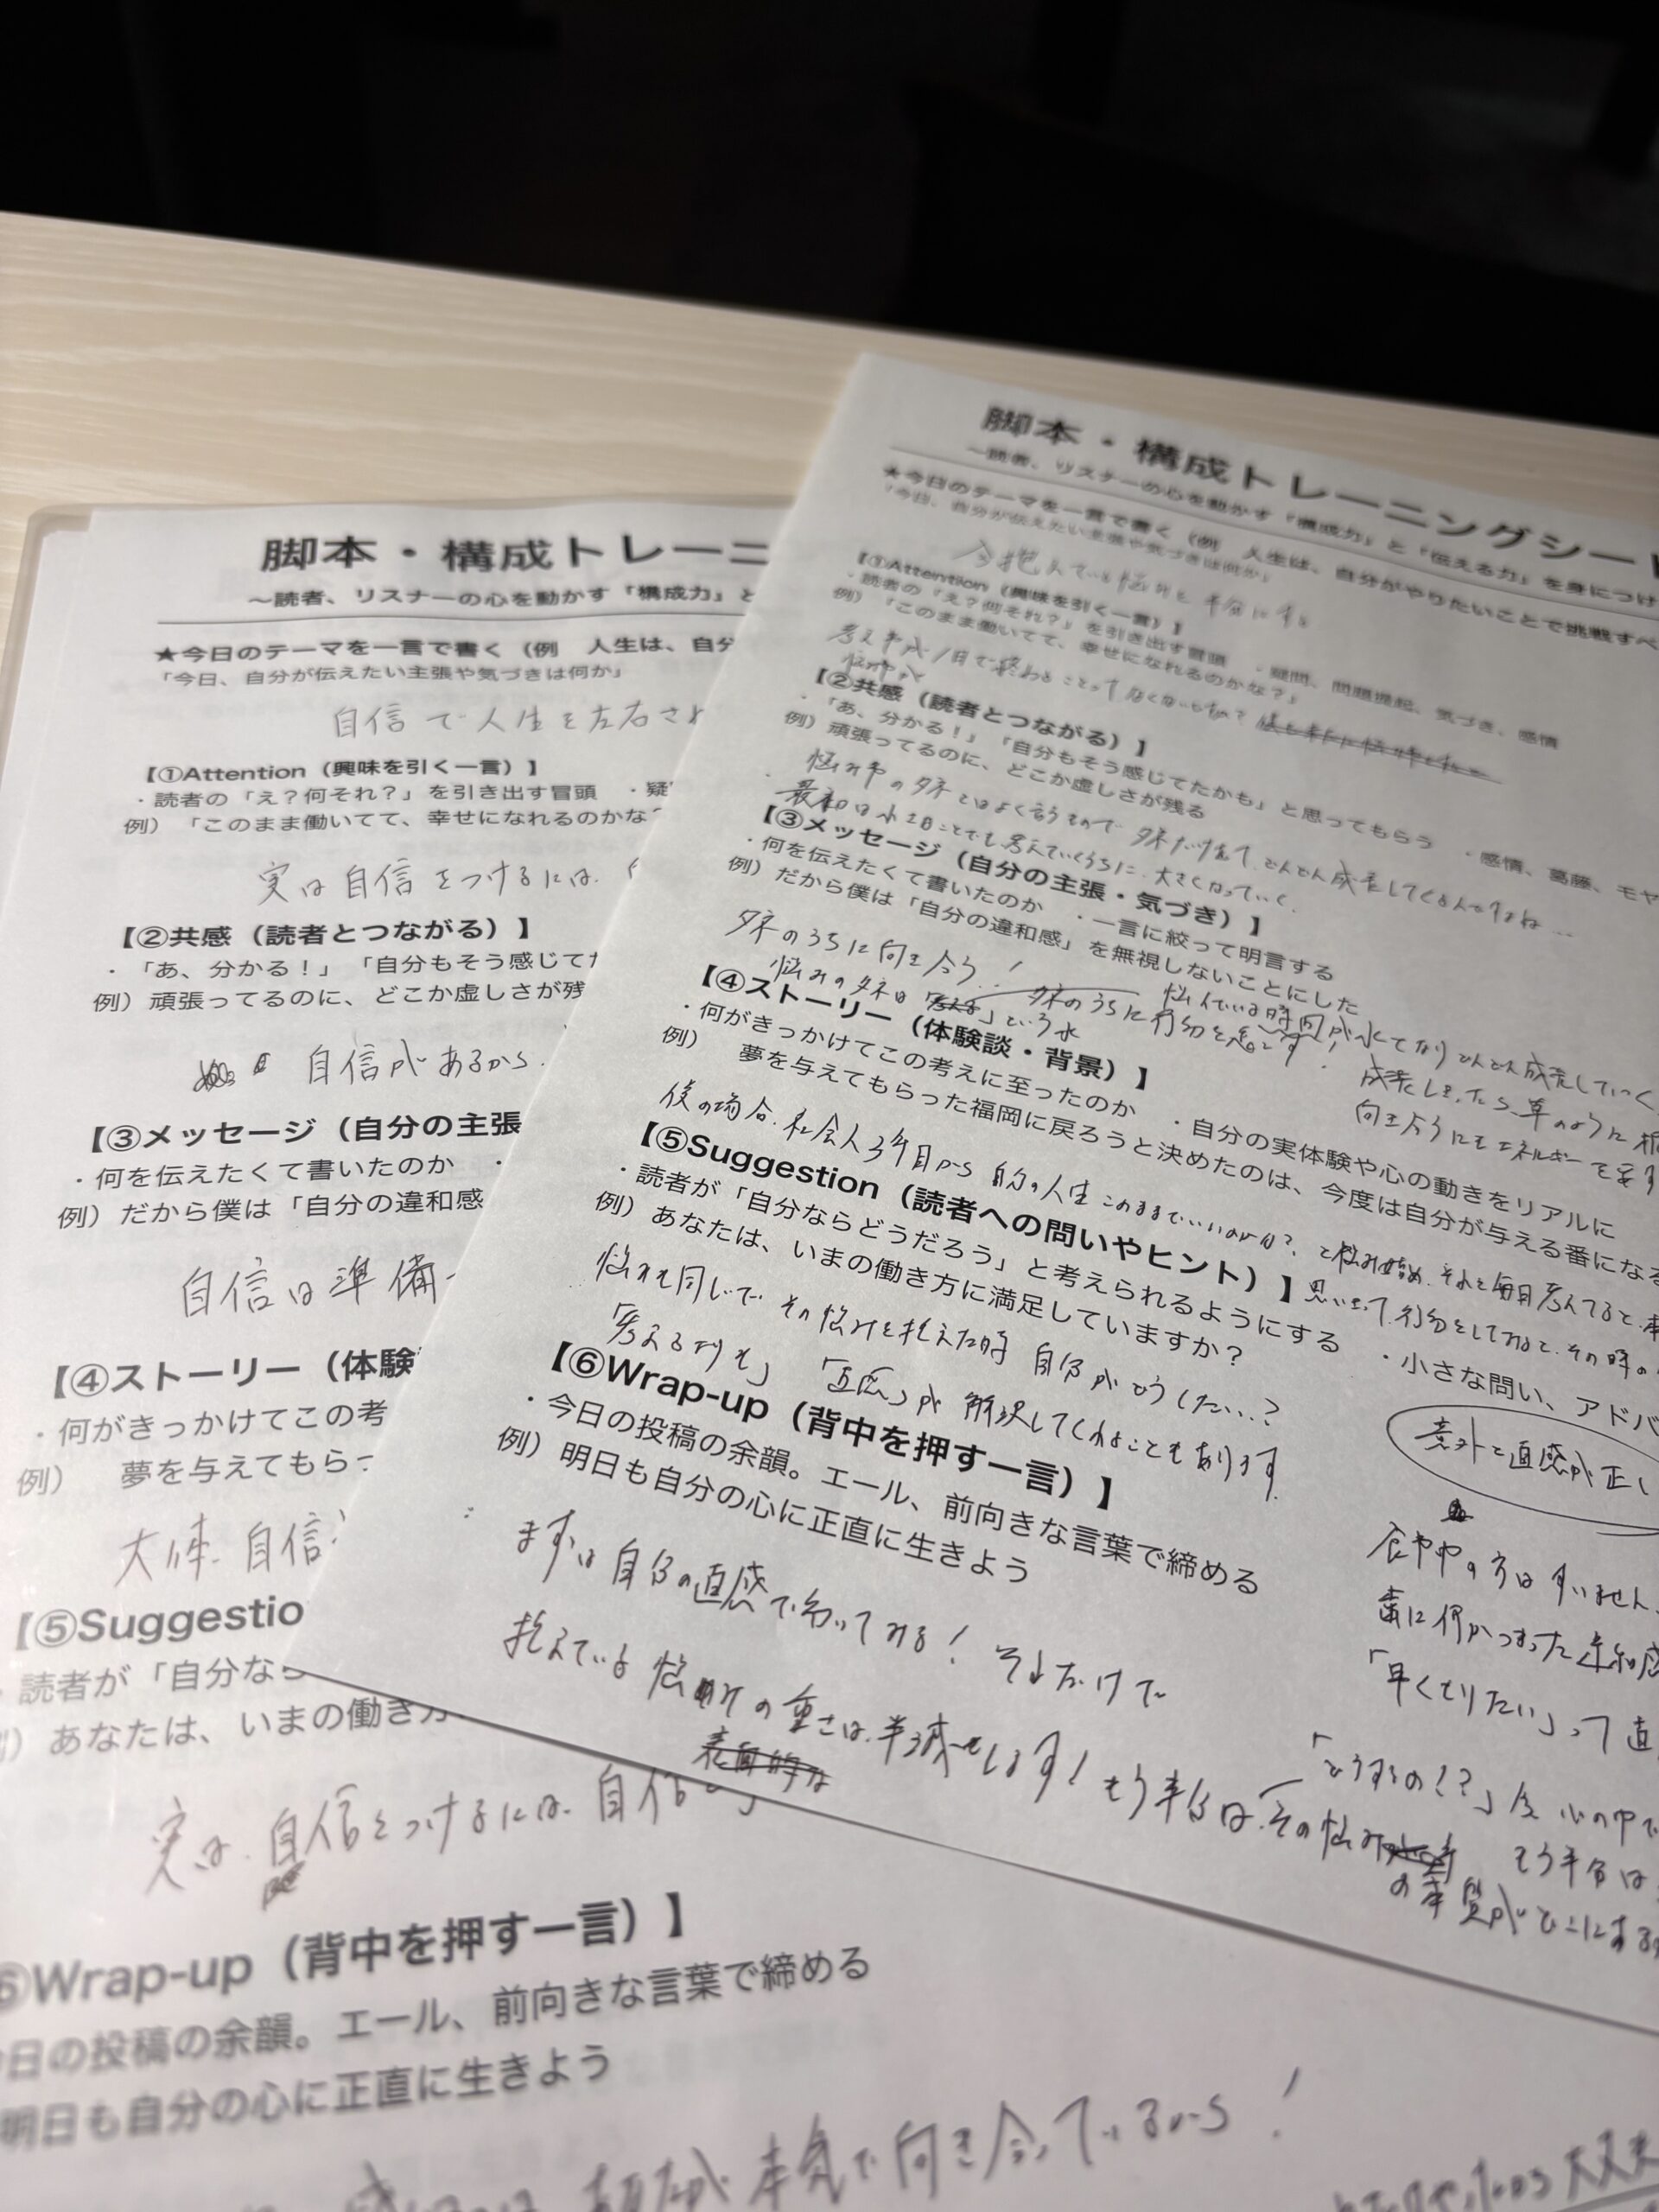 脚本・構成トレーニ
～読者、リスナーの心を動かす「構成力」と
★今日のテーマを一言で書く（例　人生は、自分
「今日、自分が伝えたい主張や気づきは何か」
自信で人生を左右され
【①Attention（興味を引く一言）】
・読者の「え？何それ？」を引き出す冒頭　・疑
例）「このまま働いてて、幸せになれるのかな？
実は自信をつけるには、
【②共感（読者とつながる）】
・「あ、分かる！」「自分もそう感じてた
例）頑張ってるのに、どこか虚しさが残
自信があるから、
【③メッセージ（自分の主張
・何を伝えたくて書いたのか　・
例）だから僕は「自分の違和感
自信は準備
【④ストーリー（体験
・何がきっかけでこの考
例）　夢を与えてもらっ
大体、自信
【⑤Suggestio
読者が「自分なら
例）あなたは、いまの働き方
実は、自信をつけるには、自信
⑥Wrap-up（背中を押す一言）】
今日の投稿の余韻。エール、前向きな言葉で締める
明日も自分の心に正直に生きよう
本気で向き合っているから！
大丈夫
脚本・構成トレーニングシート
～読者、リスナーの心を動かす「構成力」と「伝える力」を身につけ
★今日のテーマを一言で書く（例　人生は、自分がやりたいことで挑戦すべ
「今日、自分が伝えたい主張や気づきは何か」
今抱えている悩みを半分にする
【①Attention（興味を引く一言）】
・読者の「え？何それ？」を引き出す冒頭　・疑問、問題提起、気づき、感情
例）「このまま働いてて、幸せになれるのかな？」
考え事が1日で終わることってなくないですか？
【②共感（読者とつながる）】
・「あ、分かる！」「自分もそう感じてたかも」と思ってもらう　・感情、葛藤、モヤ
例）頑張ってるのに、どこか虚しさが残る
悩みやのタネとはよく言うもので、タネだけあって、どんどん成長してくるんですよね…
最初は小さいことでも考えていくうちに、大きくなっていく。
【③メッセージ（自分の主張・気づき）】
・何を伝えたくて書いたのか　・一言に絞って明言する
例）だから僕は「自分の違和感」を無視しないことにした
タネのうちに向き合う！　タネのうちに行動を起こす！
悩みのタネは「　」という水
悩んでいる時間が水となりどんどん成長していく
成長しきったら、草のように根
向き合うにもエネルギーを要す
【④ストーリー（体験談・背景）】
・何がきっかけでこの考えに至ったのか　・自分の実体験や心の動きをリアルに
例）　夢を与えてもらった福岡に戻ろうと決めたのは、今度は自分が与える番になる
僕の場合、社会人3年目から自分の人生このままでいいのか？、と悩み始め、それを毎日考えてると、
思い立って、行動をしてみると、その時の
【⑤Suggestion（読者への問いやヒント）】
・読者が「自分ならどうだろう」と考えられるようにする　・小さな問い、アドバ
例）あなたは、いまの働き方に満足していますか？
悩みも同じで、その悩みを抱えた時、自分がどうしたい…？
「考えるよりも」「直感」が解決してくれることもあります。
意外と直感が正し
【⑥Wrap-up（背中を押す一言）】
・今日の投稿の余韻。エール、前向きな言葉で締める
例）明日も自分の心に正直に生きよう
まずは自分の直感で動いてみる！それだけで
抱えている悩みの重さは、半減します！もう半分は、その悩み
の本質がどこにある
の方はすいません、
歯に何かつまった違和感
「早くとりたい」って直
「どうするの！？」
心の中で
もう半分は